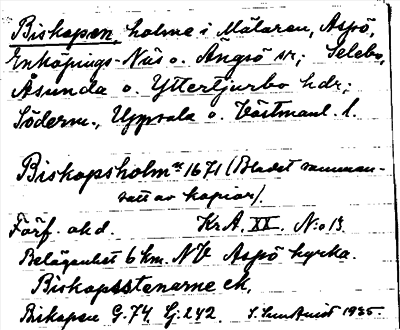 Biskopen, holme i Mälaren, Aspö,
Enköpings-Näs o. Ängsö sr; Selebo,
Åsunda o. Yttertjurbo hdr;
Söderm., Uppsala o. Västmanl. l.
Biskopsholmne 1671 (Bladet samman-
satt av kopior).
Förf. okd. Kr A. XX. N:o 13.
Belägenhet 6 km. NV Aspö kyrka.
Biskopsstenarne ek.
Biskopen G. 74 Gj: 242. 1935.